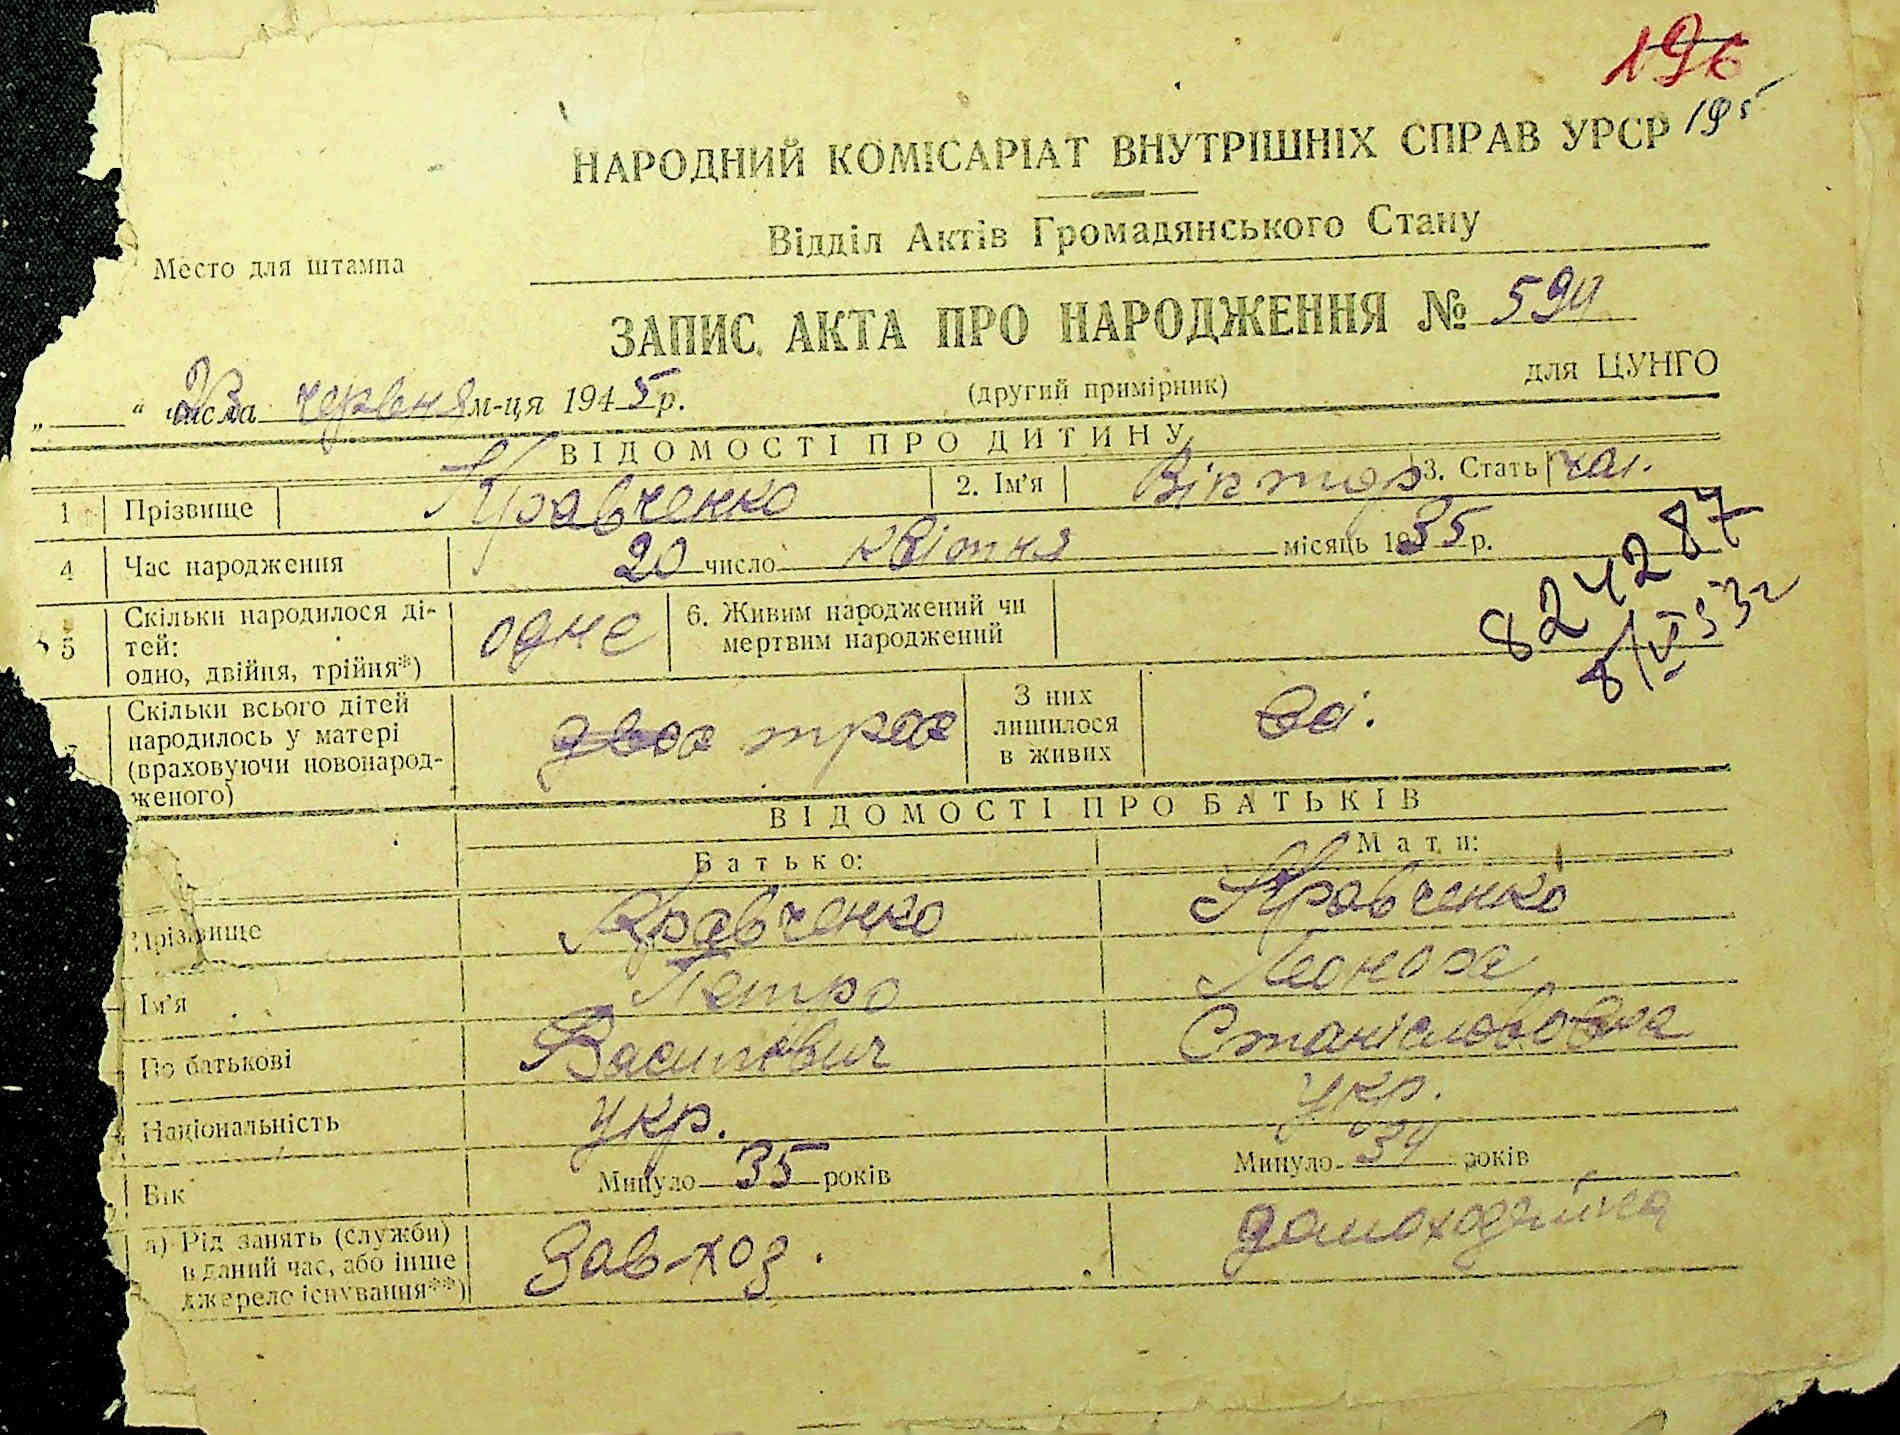 196
195
НАРОДНИЙ КОМІСАРІАТ ВНУТРІШНІХ СПРАВ УРСР
Відділ Актів Громадянського Стану
Место для штампа
ЗАПИС АКТА ПРО НАРОДЖЕННЯ № 594
„ “ 23 числа червня м-ця 1945 р.
(другий примірник)
для ЦУНГО
ВІДОМОСТІ ПРО ДИТИНУ
1 Прізвище Кравченко 2. Ім'я Віктор 3. Стать чол.
4 Час народження 20 число квітня місяць 1935 р.
824287
8/VI 53 г
5 Скільки народилося ді-
тей:
одно, двійня, трійня*) одне 6. Живим народжений чи
мертвим народжений
Скільки всього дітей
народилось у матері
(враховуючи новонарод-
женого) двоє троє З них
лишилося
в живих всі.
ВІДОМОСТІ ПРО БАТЬКІВ
Батько: Мати:
Прізвище Кравченко Кравченко
Ім'я Петро
По батькові Василівич Станіславовна
Національність укр. укр.
Вік Минуло 35 років Минуло 34 років
а) Рід занять (службн)
в даний час, або інше
джерело існування**) Зав-хоз. домохозяйка